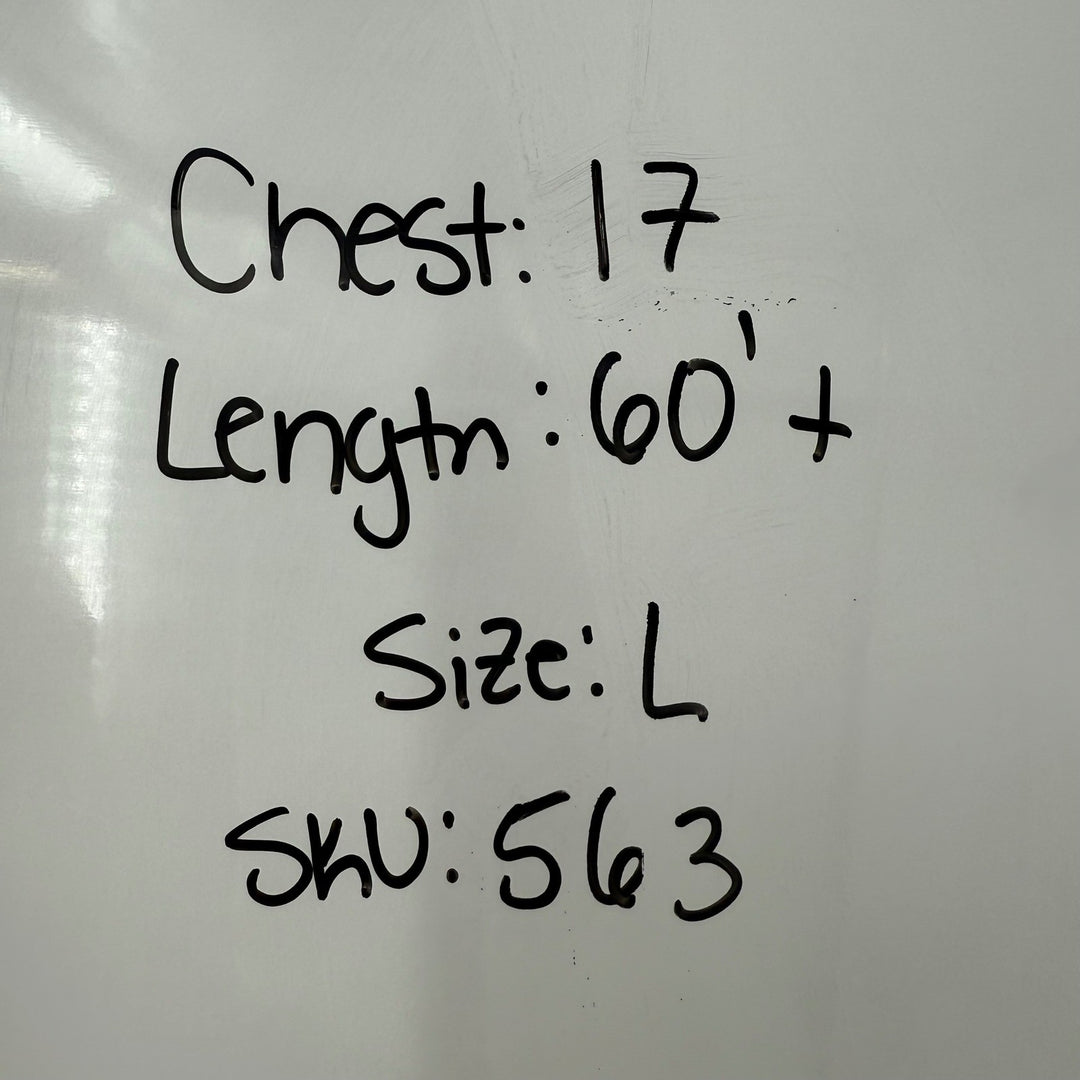 Chest: 17
Length: 60' +
Size: L
SKU: 563